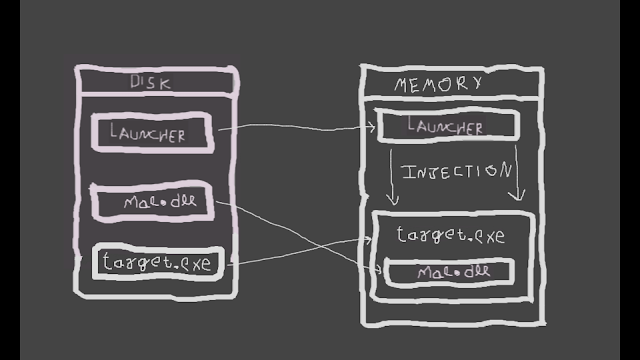 DISK
LAUNCHER
Mal.dll
target.exe
MEMORY
LAUNCHER
INJECTION
target.exe
Mal.dll